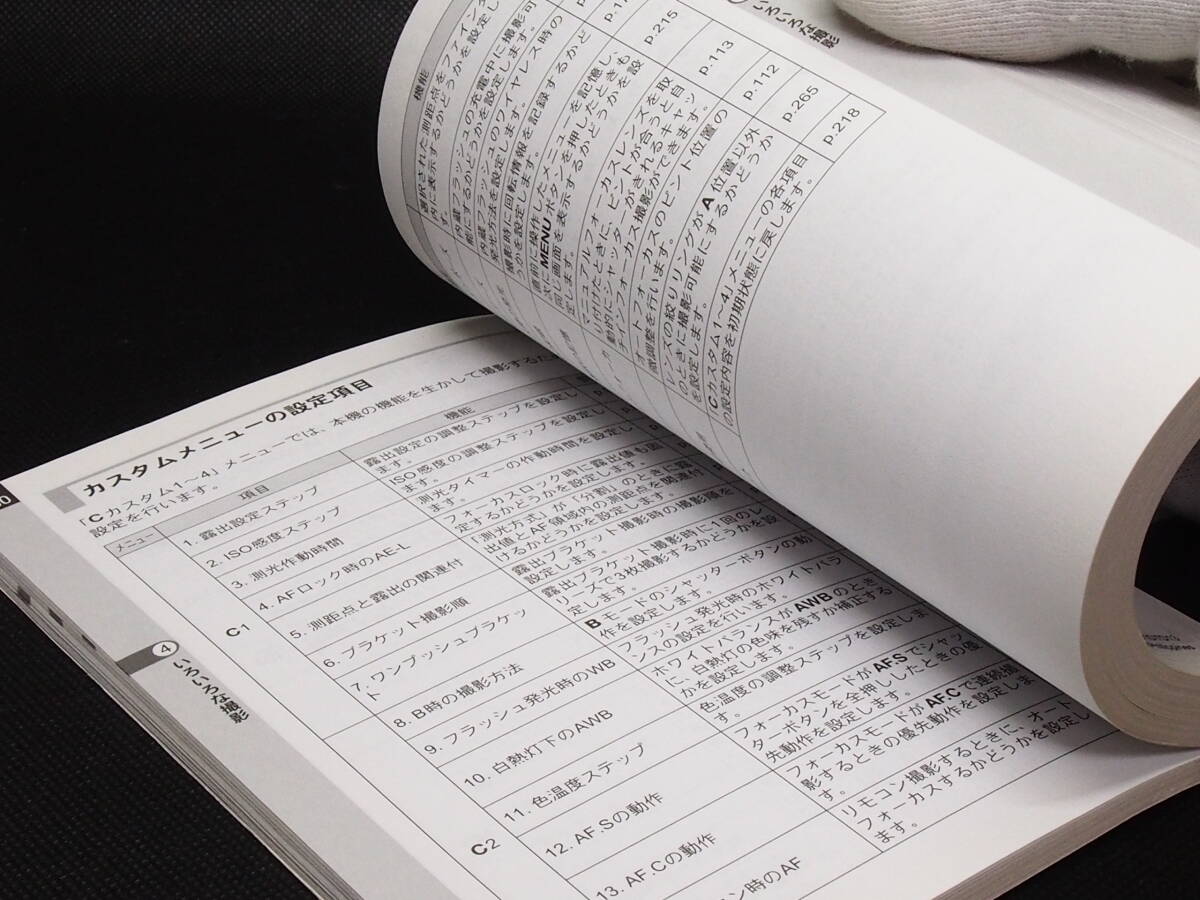 カスタムメニューの設定項目
「Cカスタム1～4」メニューでは、本機の機能を生かして撮影するため
設定を行います。
メニュー
項目
機能
C1
1. 露出設定ステップ
露出設定の調整ステップを設定し
ます。
2. ISO感度ステップ
ISO感度の調整ステップを設定し
ます。
3. 測光作動時間
測光タイマーの作動時間を設定し
ます。
4. AFロック時のAE-L
フォーカスロック時に露出値も固
定するかどうかを設定します。
5. 測距点と露出の関連付
「測光方式」が「分割」のときに露
出値とAF領域内の測距点を関連付
けるかどうかを設定します。
6. ブラケット撮影順
露出ブラケット撮影時の撮影順を
設定します。
7. ワンプッシュブラケッ
ト
露出ブラケット撮影時に1回のレ
リーズで3枚撮影するかどうかを設
定します。
8. B時の撮影方法
Bモードのシャッターボタンの動
作を設定します。
9. フラッシュ発光時のWB
フラッシュ発光時のホワイトバラ
ンスの設定を行います。
10. 白熱灯下のAWB
ホワイトバランスがAWBのとき
に、白熱灯の色味を残すか補正する
かを設定します。
11. 色温度ステップ
色温度の調整ステップを設定しま
す。
C2
12. AF.Sの動作
フォーカスモードがAFSでシャッ
ターボタンを全押ししたときの優
先動作を設定します。
13. AF.Cの動作
フォーカスモードがAFCで連続撮
影するときの優先動作を設定しま
す。
ン時のAF
リモコン撮影するときに、オート
フォーカスするかどうかを設定し
ます。
4
いろいろな撮影
機能
選択された測距点をファインダ
内に表示するかどうかを設定しま
す。
内蔵フラッシュの充電中に撮影可
能にするかどうかを設定します。
内蔵フラッシュのワイヤレス時の
発光方法を設定します。
撮影時に回転情報を記録するかど
うかを設定します。
p.215
直前に操作したメニューを記憶し、
次にMENUボタンを押したときも
同じ画面を表示するかどうかを設
定します。
p.113
マニュアルフォーカスレンズを取
り付けたときに、ピントが合うと自
動的にシャッターがきれるキャッ
チインフォーカス撮影ができます。
p.112
オートフォーカスのピント位置の
微調整を行います。
p.265
レンズの絞りリングがA位置以外
のときに撮影可能にするかどうか
を設定します。
p.218
「Cカスタム1～4」メニューの各項目
の設定内容を初期状態に戻します。
いろいろな撮影